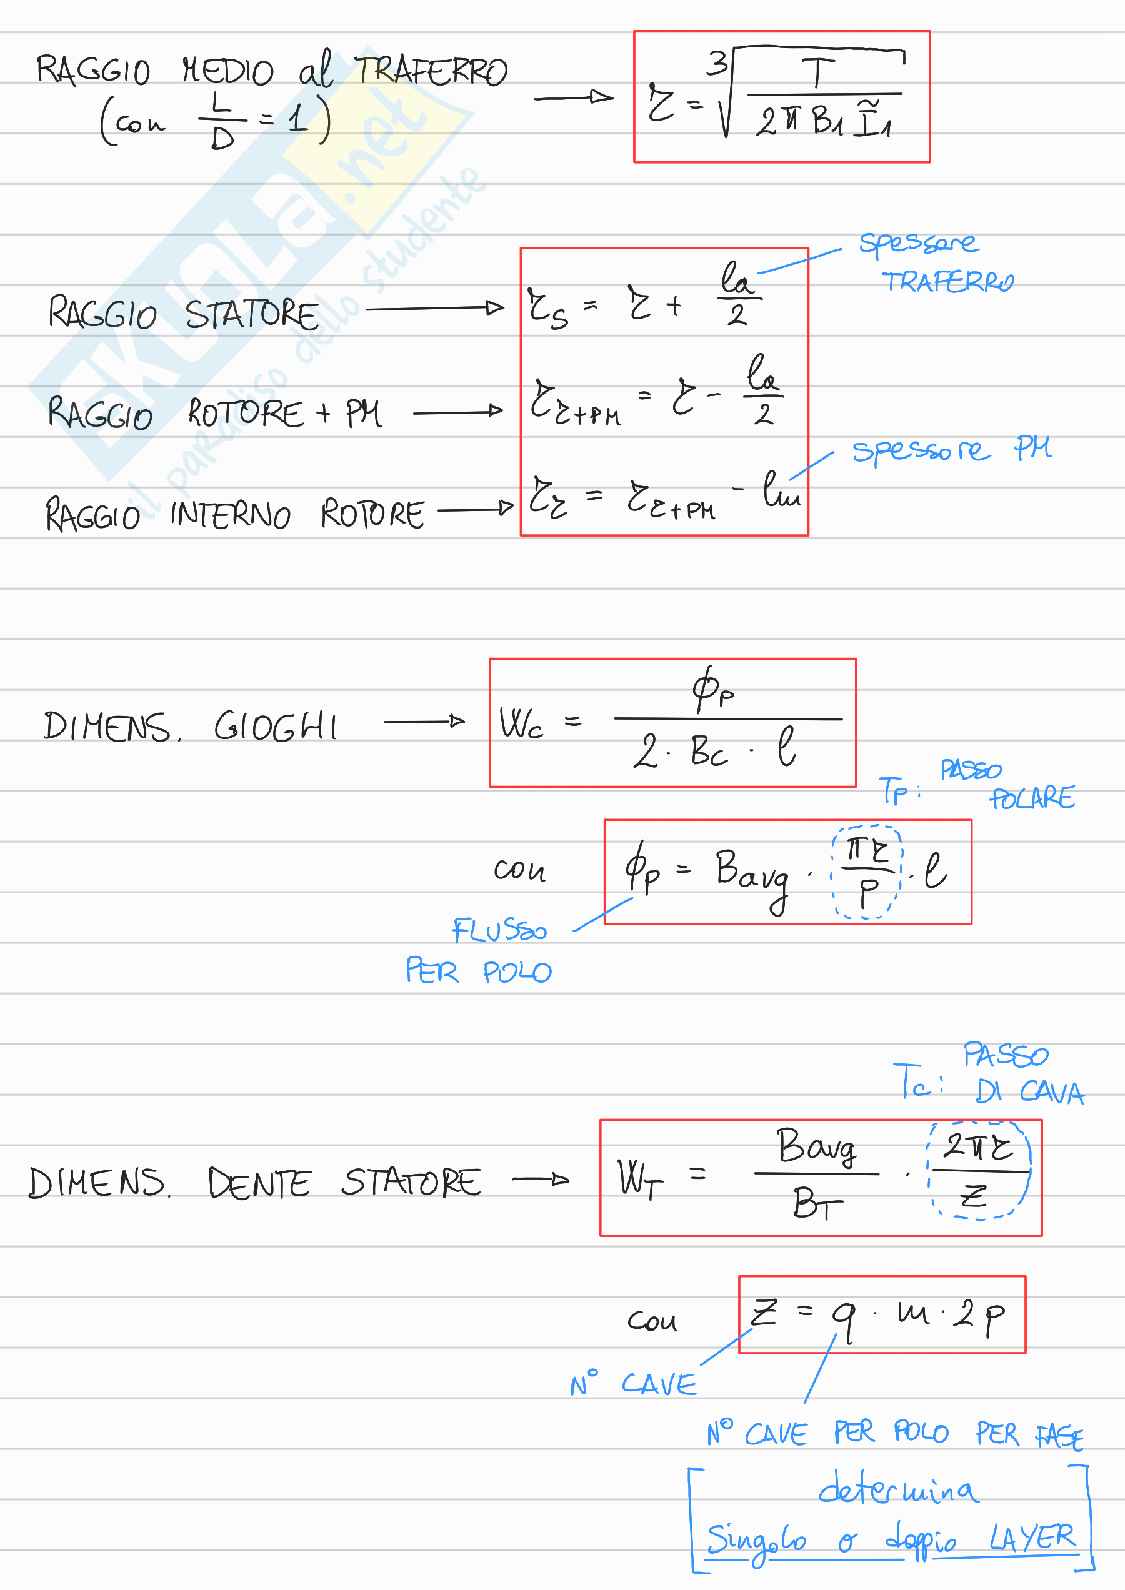 RAGGIO MEDIO al TRAFERRO
(con L/D = 1) → r = ∛(T / (2π B1 Ĩ1))
SKUOLA.net
il paradiso dello studente
spessore
TRAFERRO
RAGGIO STATORE → rS = r + la/2
RAGGIO ROTORE + PM → rr+PM = r - la/2
spessore PM
RAGGIO INTERNO ROTORE → rr = rr+PM - lm
DIMENS. GIOGHI → Wc = ϕP / (2 · Bc · l)
TP: PASSO
POLARE
con ϕP = Bavg · πr/P · l
FLUSSO
PER POLO
Tc: PASSO
DI CAVA
DIMENS. DENTE STATORE → WT = Bavg/BT · 2πr/Z
con Z = q · m · 2p
N° CAVE
N° CAVE PER POLO PER FASE
[determina
Singolo o doppio LAYER]